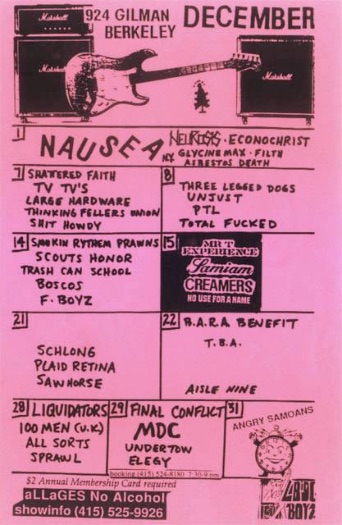 924 GILMAN
BERKELEY
DECEMBER
Marshall
Marshall
Marshall
1
NAUSEA NY
NEUROSIS · ECONOCHRIST
GLYCINE MAX · FILTH
ASBESTOS DEATH
7 SHATTERED FAITH
TV TV'S
LARGE HARDWARE
THINKING FELLERS UNION
SHIT HOWDY
8
THREE LEGGED DOGS
UNJUST
PTL
TOTAL FUCKED
14 SMOKIN RYTHEM PRAWNS
SCOUTS HONOR
TRASH CAN SCHOOL
BOSCOS
F. BOYZ
15
MR T
EXPERIENCE
Samiam
CREAMERS
NO USE FOR A NAME
21
SCHLONG
PLAID RETINA
SAWHORSE
22 B.A.R.A. BENEFIT
T.B.A.
AISLE NINE
28 LIQUIDATORS
100 MEN (U.K)
ALL SORTS
SPRAWL
29 FINAL CONFLICT
MDC
UNDERTOW
ELEGY
31
ANGRY SAMOANS
BOYZ
booking (415) 524-8180 7:30-9 pm
$2 Annual Membership Card required
aLLaGES No Alcohol
showinfo (415) 525-9926